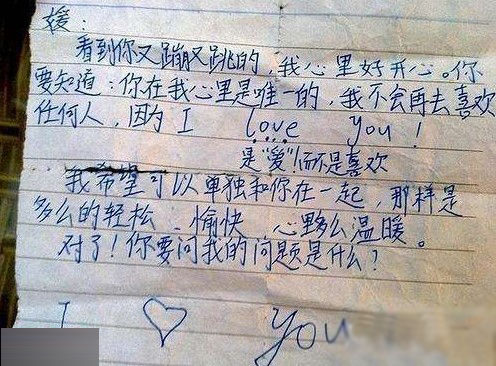 媛：
看到你又蹦又跳的，我心里好开心。你
要知道：你在我心里是唯一的，我不会再去喜欢
任何人，因为 I love you！
是“爱”！而不是喜欢
我希望可以单独和你在一起，那样是
多么的轻松、愉快，心多么温暖。
对了！你要问我的问题是什么？
I ♡ you